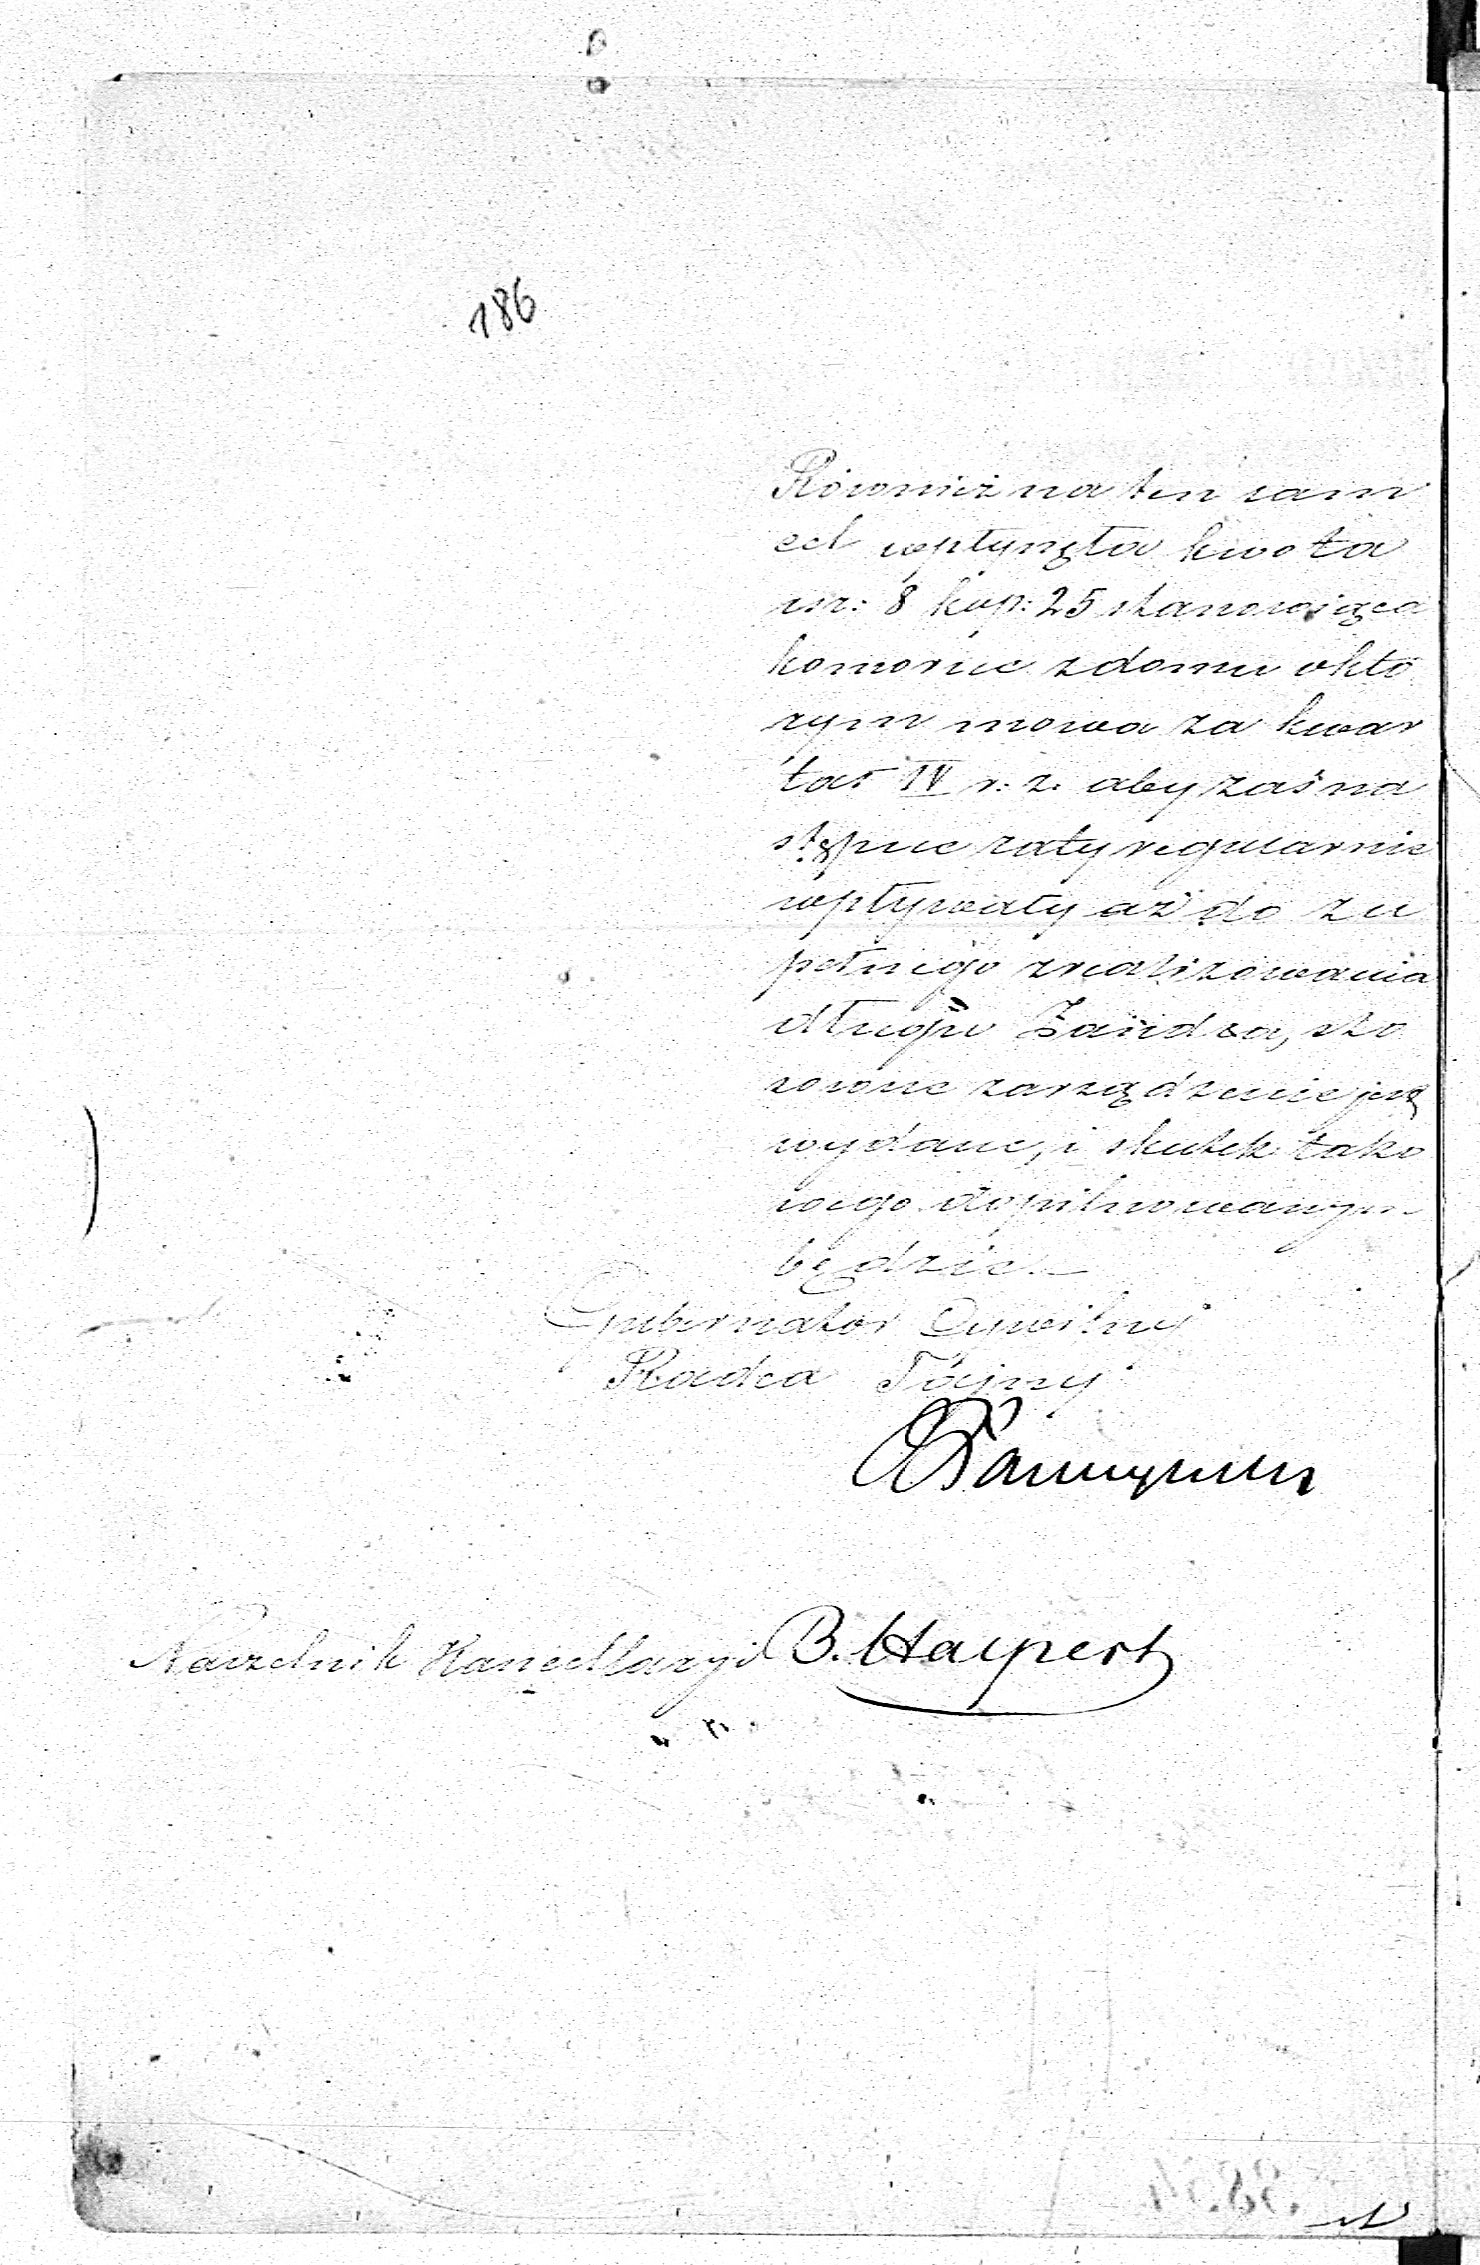 186
Rówonież na ten sam
cel wpłynęła kwota
rsr: 8 kop: 25 stanowiąca
komorne z domu o któ
rym mowa za kwar
tał IV r: z. aby zaś na
stępne raty regularnie
wpływały aż do zu
pełnego zrealizowania
długu Żandra, sto
sowne zarządzenie jest
wydane, i skutek tako
wego dopilnowanym
będzie.
Gubernator Cywilny
Radca Tajny
Naczelnik Kancellaryi B. Halpert